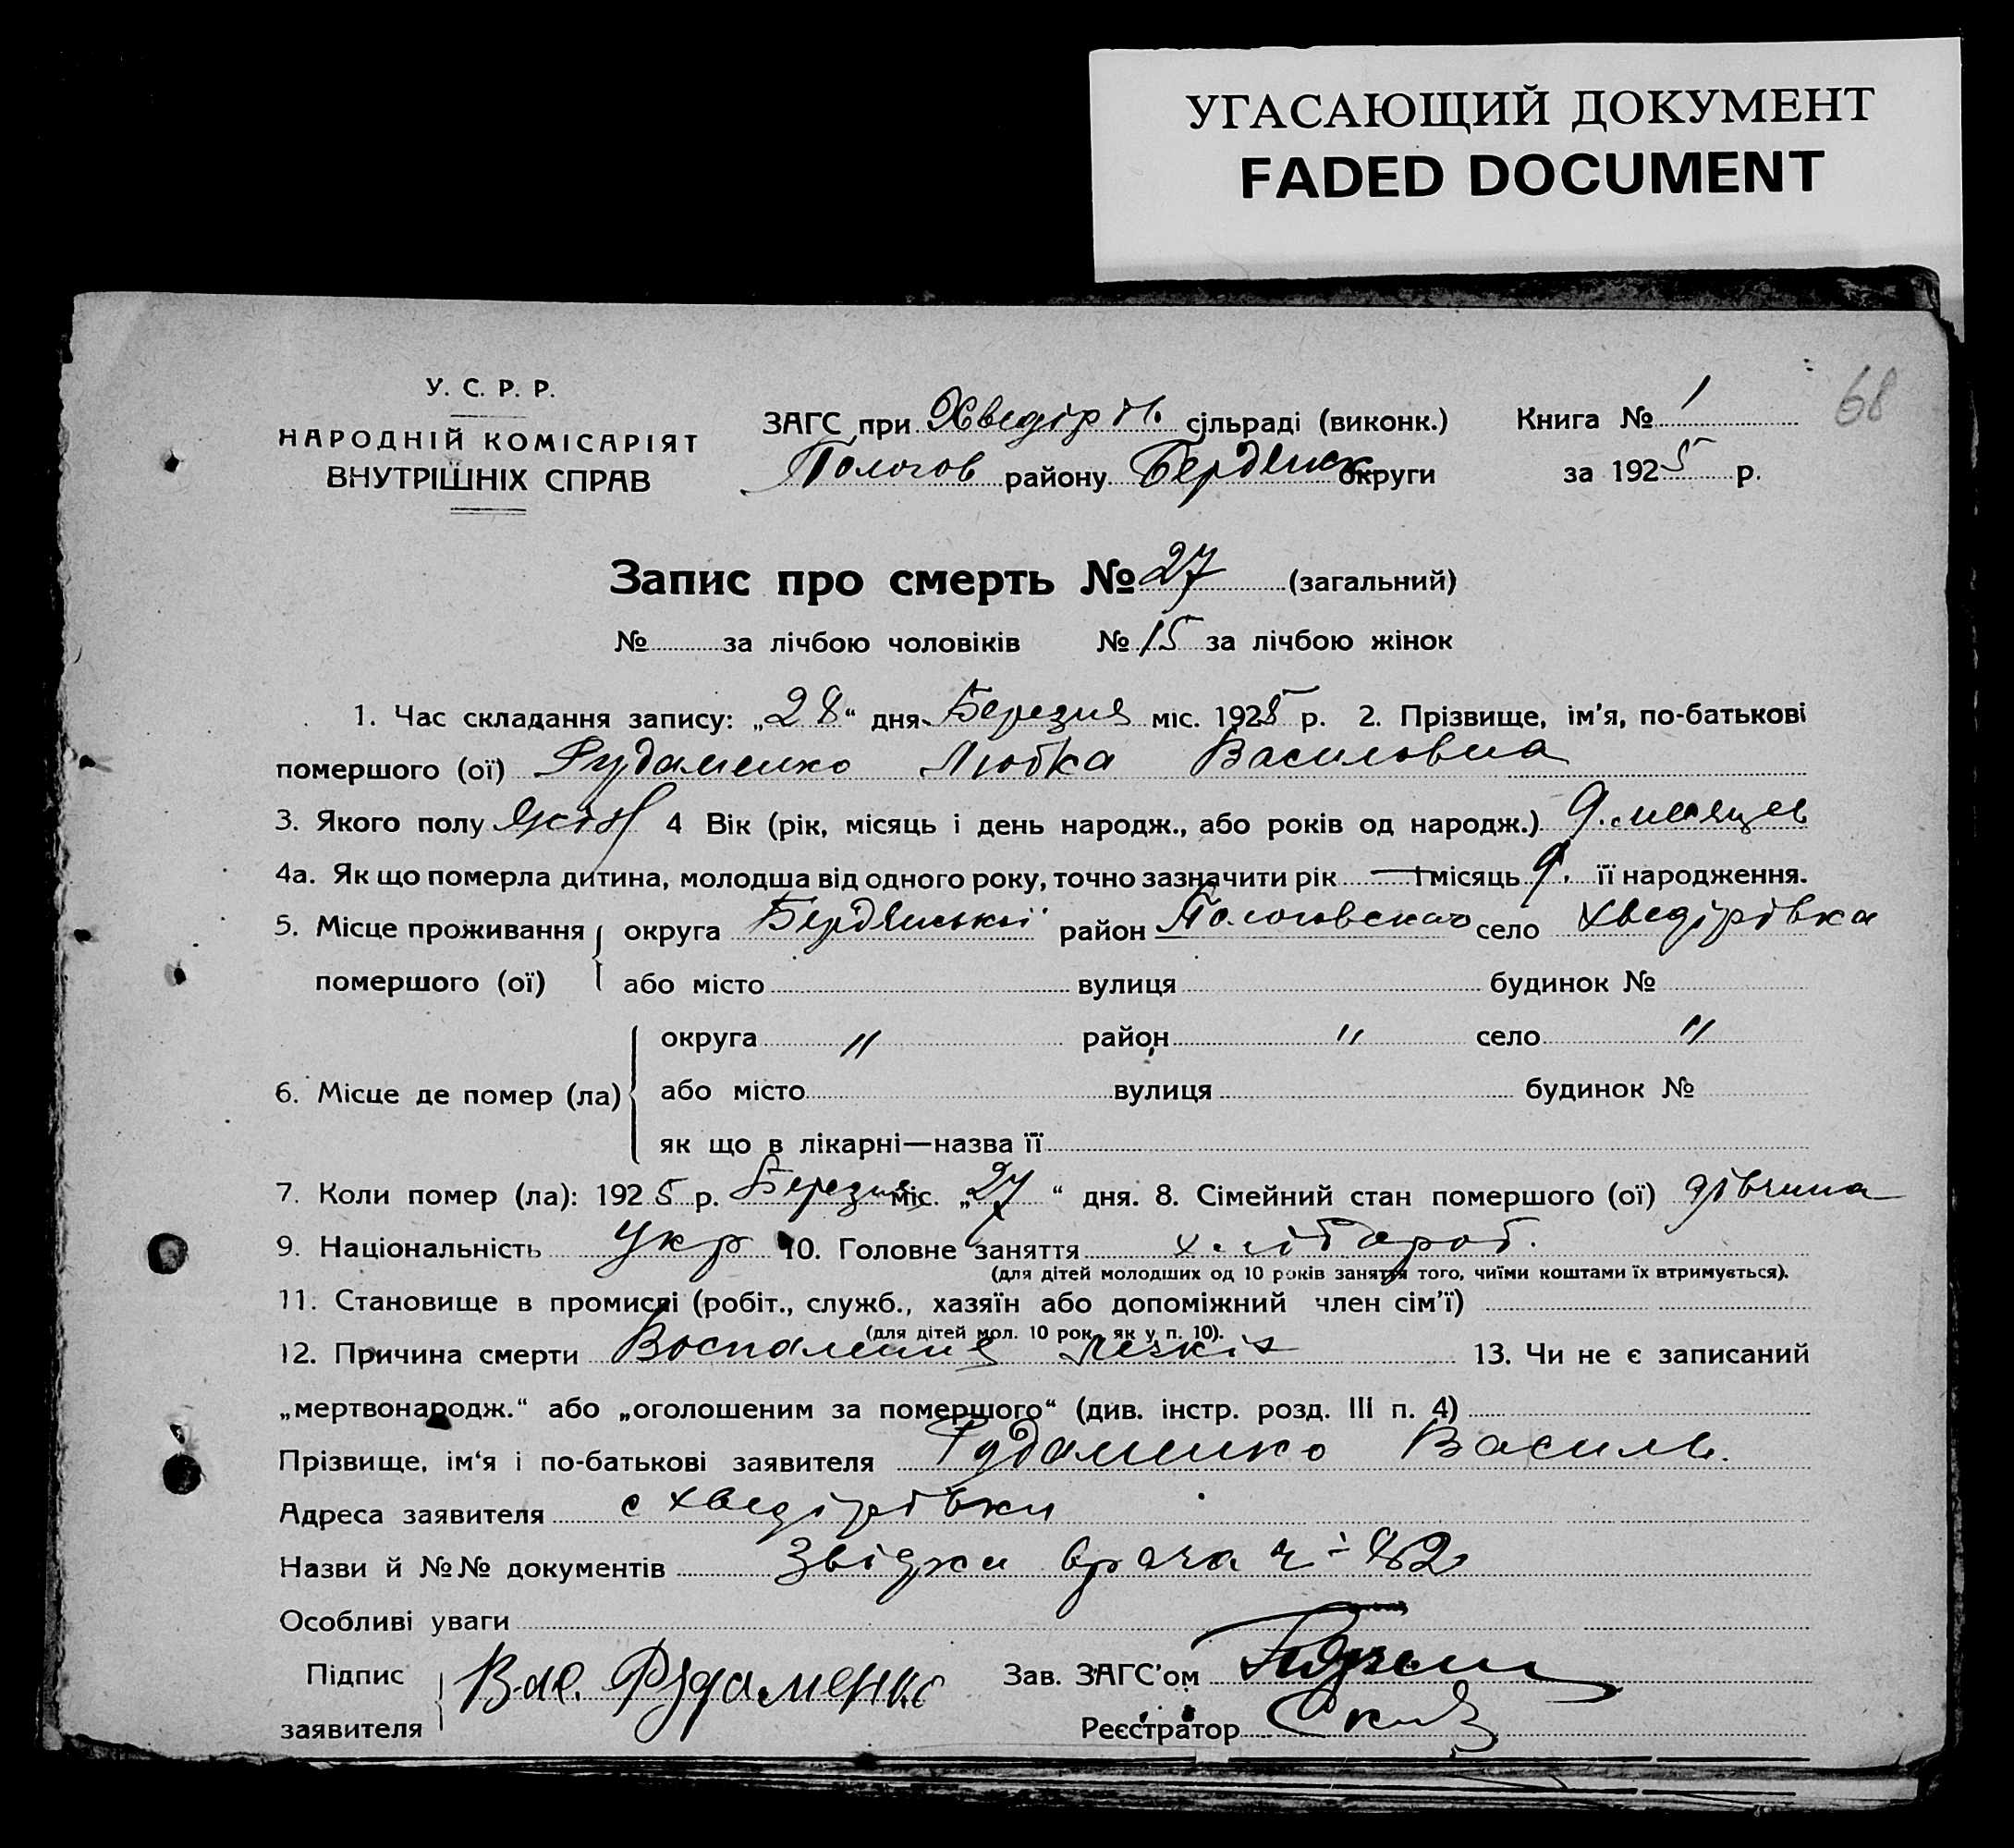 УГАСАЮЩИЙ ДОКУМЕНТ
FADED DOCUMENT
68
У. С. Р. Р.
НАРОДНІЙ КОМІСАРІЯТ
ВНУТРІШНІХ СПРАВ
ЗАГС при Хведірів. сільраді (виконк.)
Пологов району Бердянск округи
Книга № 1
за 1925 р.
Запис про смерть № 27 (загальний)
№ за лічбою чоловіків № 15 за лічбою жінок
1. Час складання запису: „28“ дня Березня міс. 1925 р. 2. Прізвище, ім'я, по-батькові
помершого (ої) Рудаменко Любка Василовна
3. Якого полу 4 Вік (рік, місяць і день народж., або років од народж.) 9. месяцев
4а. Як що померла дитина, молодша від одного року, точно зазначити рік — і місяць 9. її народження.
5. Місце проживання округа Бердянської район Пологовскаго село Хведірівка
помершого (ої) або місто вулиця будинок №
округа " район " село "
6. Місце де помер (ла) або місто вулиця будинок №
як що в лікарні—назва її
7. Коли помер (ла): 1925 р. Березня міс. „27“ дня. 8. Сімейний стан помершого (ої) дівчина
9. Національність Укр 10. Головне заняття хлібороб.
(для дітей молодших од 10 років заняття того, чиїми коштами їх втримується).
11. Становище в промислі (робіт., служб., хазяїн або допоміжний член сім'ї)
(для дітей мол. 10 рок. як у п. 10).
12. Причина смерти Воспаление 13. Чи не є записаний
„мертвонародж.“ або „оголошеним за помершого“ (див. інстр. розд. III п. 4)
Прізвище, ім‘я і по-батькові заявителя Рудаменко Василь.
Адреса заявителя с Хведірівки
Назви й №№ документів Звідки врача
Особливі уваги
Підпис Вас. Рудаменко Зав. ЗАГС'ом
заявителя Реєстратор